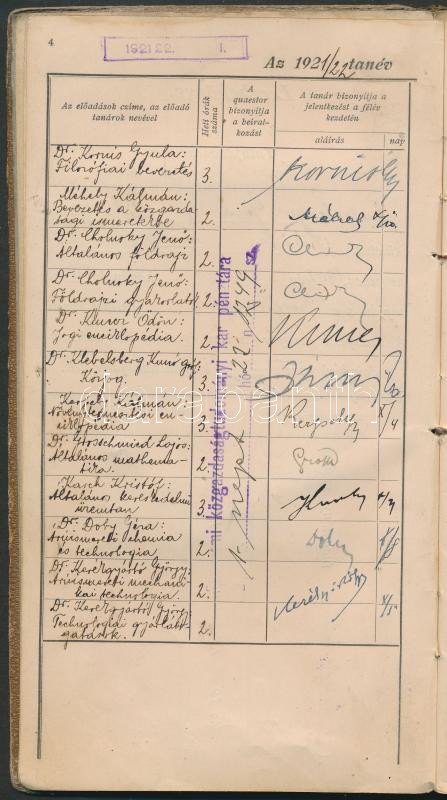 4
192122. I.
Az 1921/22 tanév
Az előadások czíme, az előadó
tanárok nevével
Heti órák
száma
A
quaestor
bizonyítja
a beirat-
kozást
A tanár bizonyítja a
jelentkezést a félév
kezdetén
aláírás
nap
Dr. Kornis Gyula:
Filozófiai bevezetés 3.
Méhely Kálmán:
Bevezetés a közgazda-
sági ismeretekbe 2.
Dr. Cholnoky Jenő:
Általános földrajz 2.
Dr. Cholnoky Jenő:
Földrajzi gyakorlatok 2.
Dr. Kuncz Ödön:
Jogi enciklopédia 2.
Dr. Klebelsberg Kunó gróf:
Közjog. 3.
Kerpely Kálmán:
Növénytermesztési en-
ciklopédia 3.
Dr. Grosschmied Lajos:
Általános mathema-
tika. 2.
Karch Kristóf:
Általános kereskedelmi
üzemtan 3.
Dr. Doby Géza:
Áruismereti chemia
és technologia 2.
Dr. Kerekgyártó György:
Áruismereti mechani-
kai technologia. 2.
Dr. Kerekgyártó György:
Technologiai gyakorla-
gatások. 2.
közgazdaságtudományi kar pénztára
darabanth